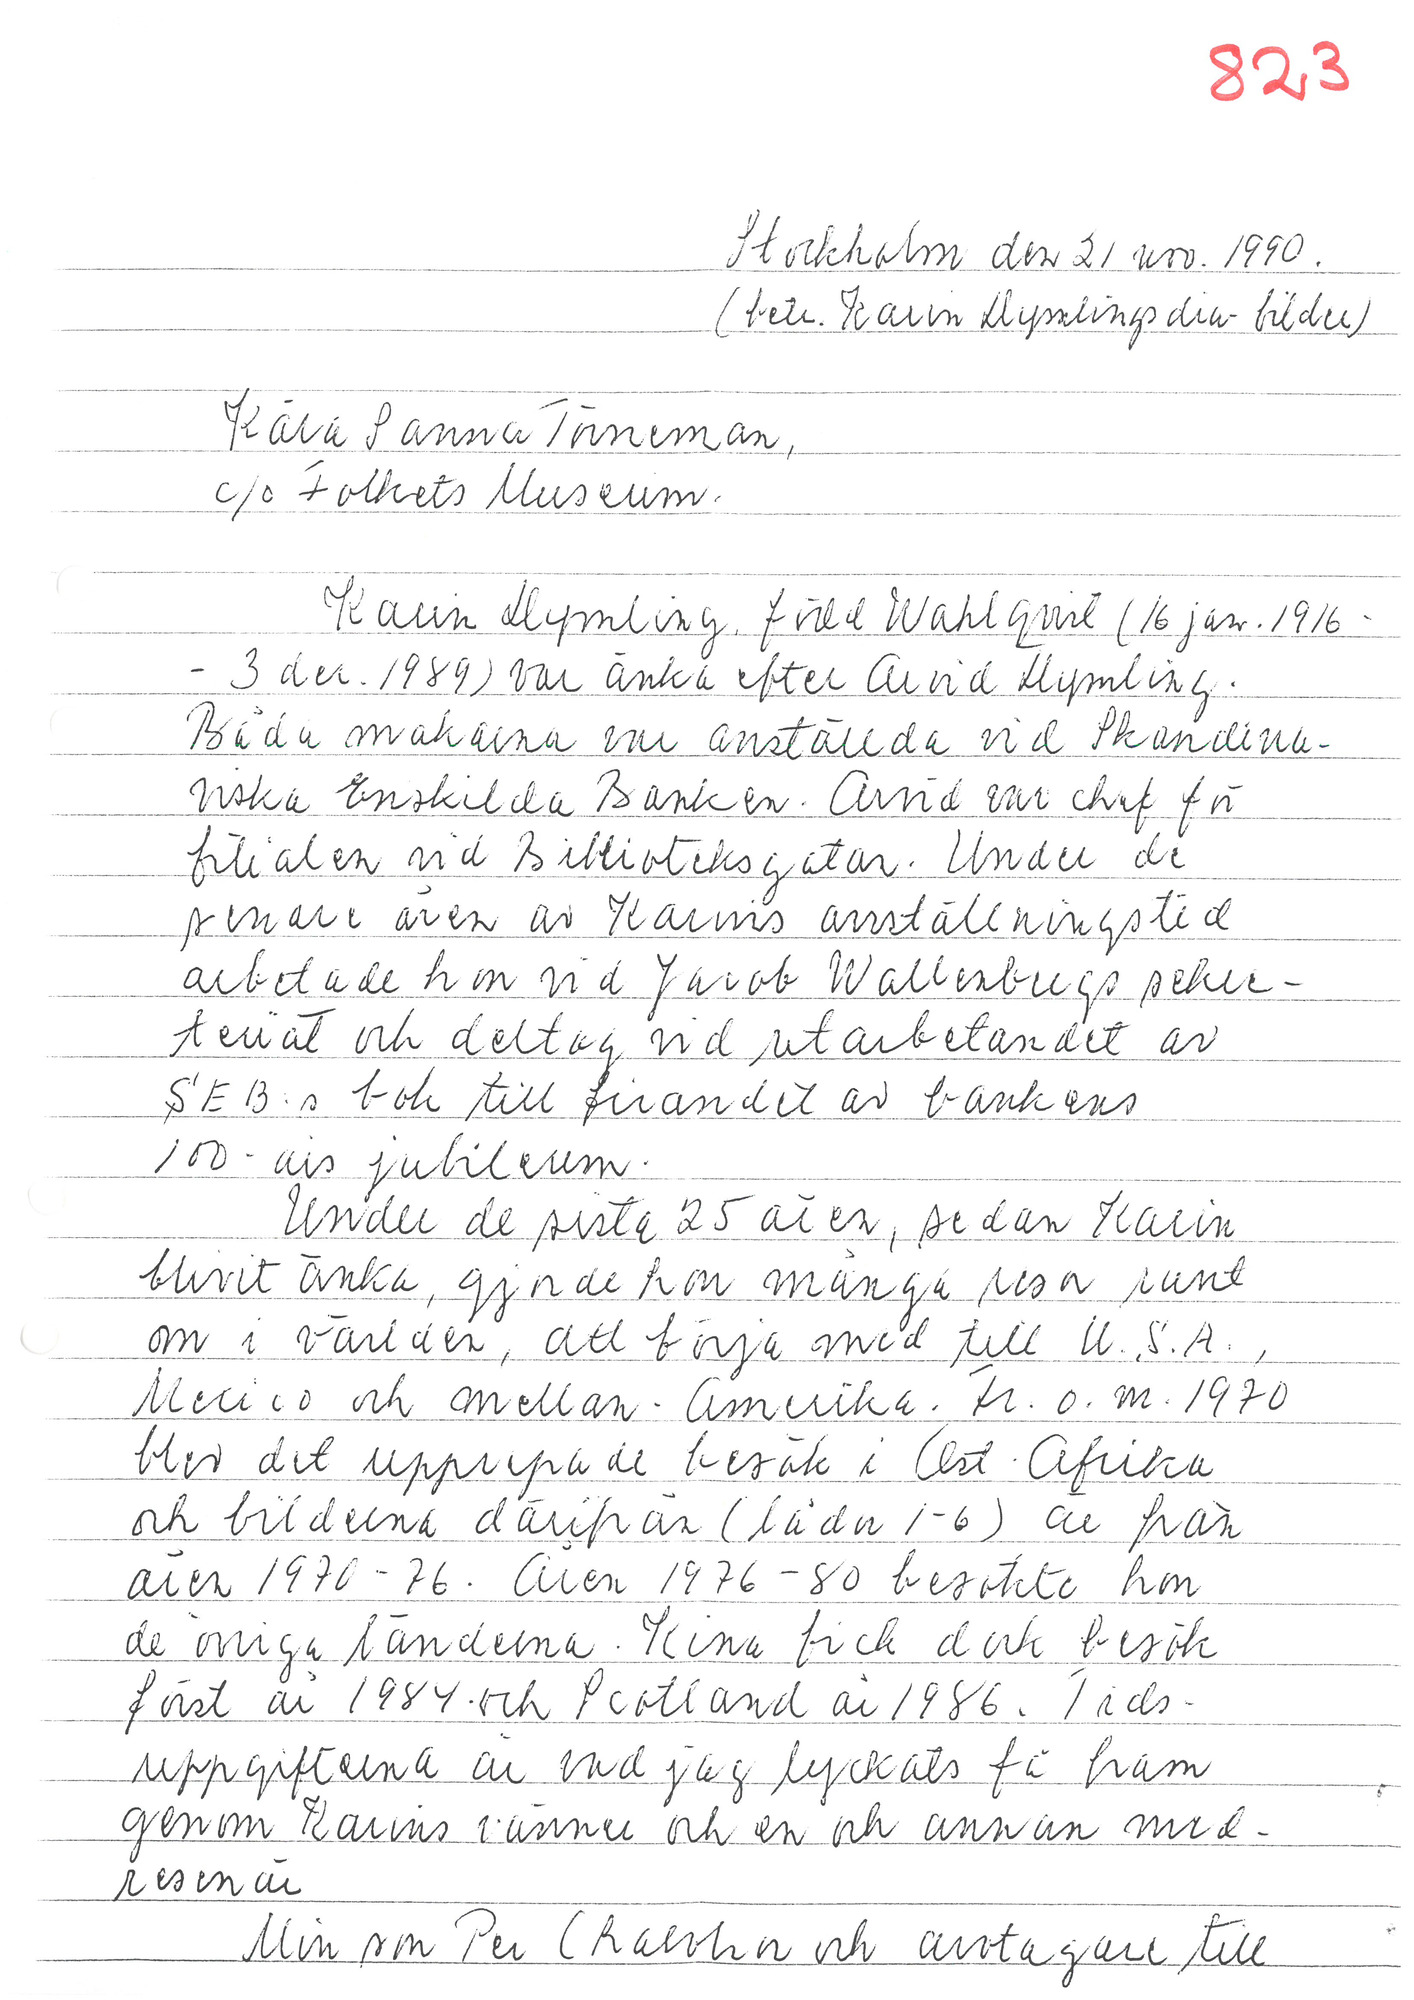 823
Stockholm den 21 nov. 1990.
(betr. Karin Dymlings dia-bilder)
Kära Sanna Törneman,
c/o Folkets Museum.
Karin Dymling, född Wahlqvist (16 jan. 1916 -
- 3 dec. 1989) var änka efter Arvid Dymling.
Båda makarna var anställda vid Skandina-
viska Enskilda Banken. Arvid var chef för
filialen vid Biblioteksgatan. Under de
senare åren av Karins anställningstid
arbetade hon vid Jacob Wallenbergs sekre-
teriat och deltog vid utarbetandet av
SEB:s bok till firandet av bankens
100-års jubileum.
Under de sista 25 åren, sedan Karin
blivit änka, gjorde hon många resor runt
om i världen, att börja med till U.S.A.,
Mexico och Mellan-Amerika. Fr. o. m. 1970
blev det upprepade besök i Öst-Afrika
och bilderna därifrån (lådor 1-6) är från
åren 1970-76. Åren 1976-80 besökte hon
de övriga länderna. Kina fick dock besök
först år 1984 och Scotland år 1986. Tids-
uppgifterna är vad jag lyckats få fram
genom Karins vänner och en och annan med-
resenär
Min son Per och arvtagare till